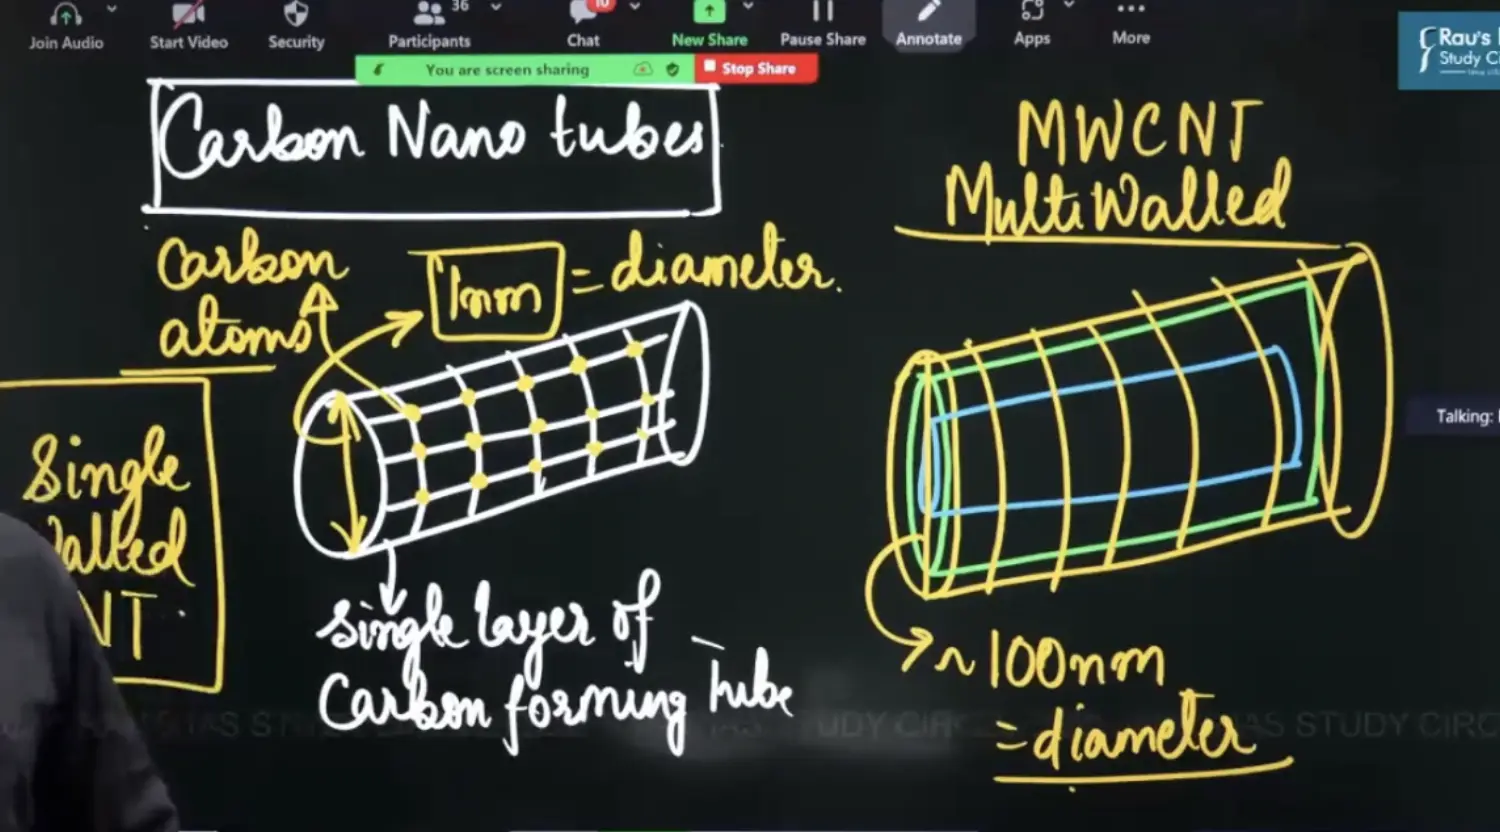 36
10
Join Audio
Start Video
Security
Participants
Chat
New Share
Pause Share
Annotate
Apps
More
You are screen sharing
Stop Share
Rau's
Study Ci
Carbon Nano tubes
MWCNT
Multi Walled
Carbon
atoms
1nm = diameter.
Single
Walled
NT
single layer of
Carbon forming Tube
~100nm
= diameter
Talking:
IAS STUDY CIRC